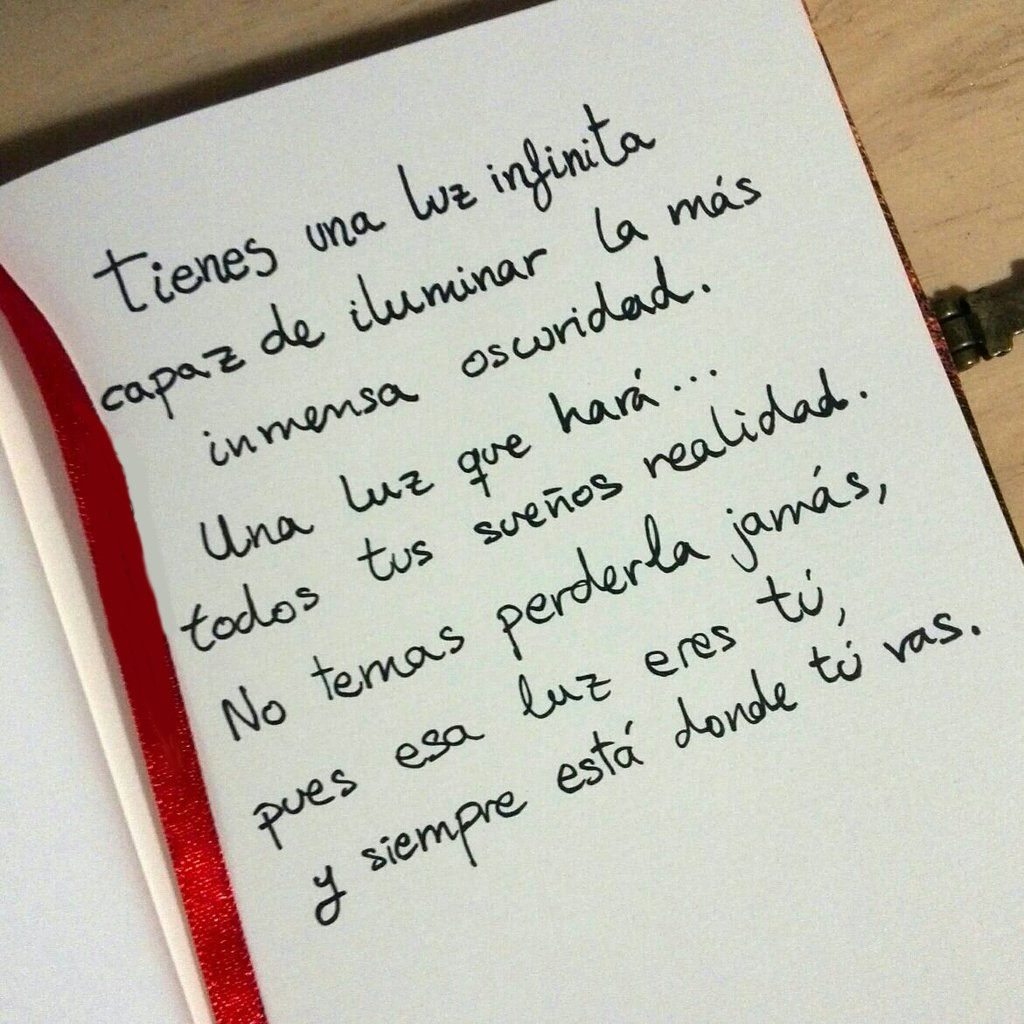 tienes una luz infinita
capaz de iluminar la más
inmensa oscuridad.
Una luz que hará...
todos tus sueños realidad.
No temas perderla jamás,
pues esa luz eres tú,
y siempre está donde tú vas.